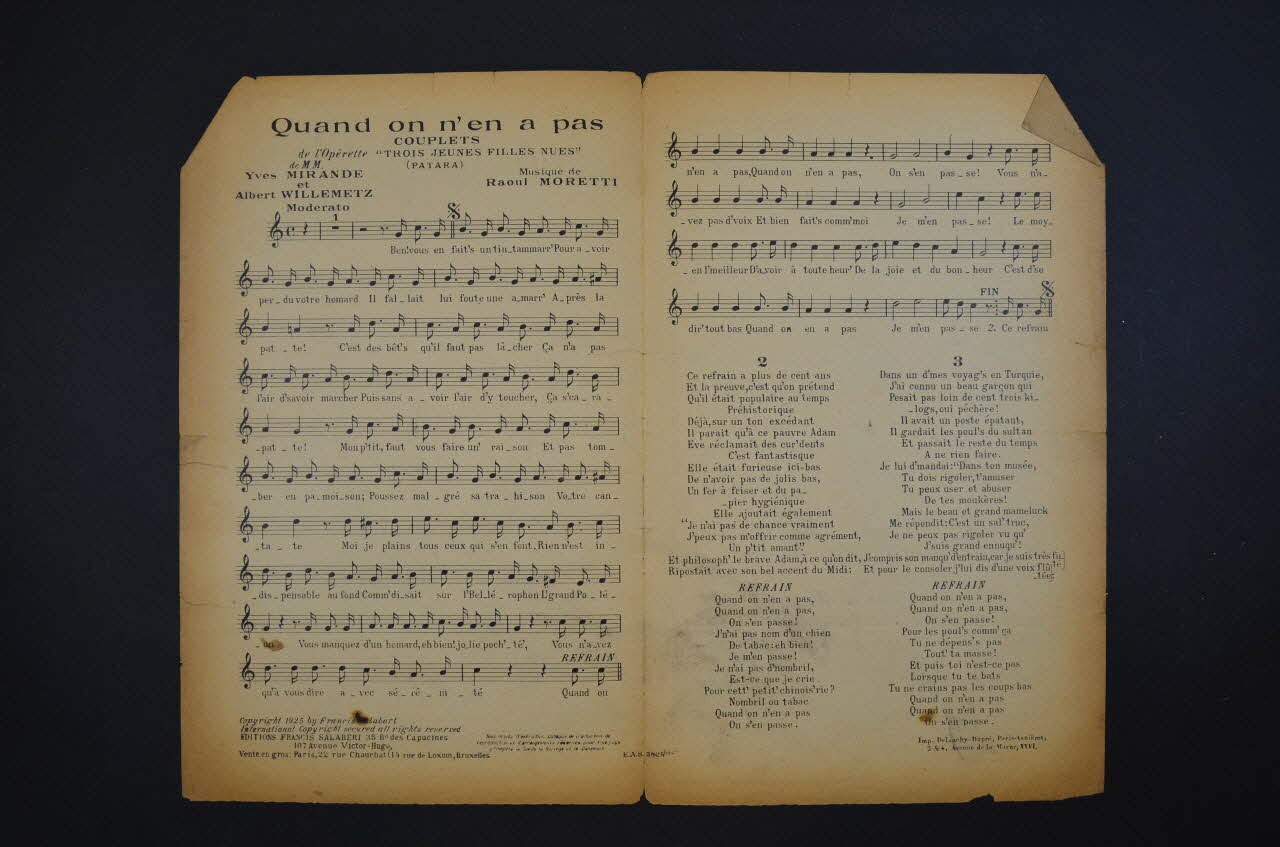 Quand on n'en a pas
COUPLETS
de l'Opérette "TROIS JEUNES FILLES NUES"
(PATARA)
de MM
Yves MIRANDE
et
Albert WILLEMETZ
Musique de
Raoul MORETTI
Moderato
1
Ben!vous en fait's un tin_tammarr' Pour a_voir
per_du votre homard Il fal_lait lui foute une a_marr' A_près la
pat_te! C'est des bêt's qu'il faut pas lâ_cher Ça n'a pas
l'air d'savoir marcher Puis sans a_voir l'air d'y toucher, Ça s'ca_ra_
_pat_te! Mon p'tit, faut vous faire un' rai_son Et pas tom_
_ber en pa_moi_son; Poussez mal_gré sa tra_hi_son Vo_tre can_
_ta_te Moi je plains tous ceux qui s'en font, Rien n'est in_
_dis_pensable au fond Comm' di_sait sur l'Bel_lé_rophon L'grand Po_lé_
_on Vous manquez d'un homard, eh bien! jo_lie poch'_té', Vous n'a_vez
REFRAIN
qu'à vous dire a_vec sé_ré_ni_té Quand on
Copyright 1925 by Francis Salabert
International Copyright secured all rights reserved
EDITIONS FRANCIS SALABERT 35 Bd des Capucines
107 Avenue Victor-Hugo,
Vente en gros: Paris, 22 rue Chauchat (14 rue de Loxum, Bruxelles
E.A.S.
n'en a pas, Quand on n'en a pas, On s'en pas_se! Vous n'a_
_vez pas d'voix Et bien fait's comm' moi Je m'en pas_se! Le moy_
_en l'meilleur D'a_voir à toute heur' De la joie et du bon_heur C'est d'se
FIN
dir' tout bas Quand on en a pas Je m'en pas_se 2. Ce refrain
2
Ce refrain a plus de cent ans
Et la preuve, c'est qu'on prétend
Qu'il était populaire au temps
Préhistorique
Déjà, sur un ton excédant
Il parait qu'à ce pauvre Adam
Eve réclamait des cur'dents
C'est fantastisque
Elle était furieuse ici-bas
De n'avoir pas de jolis bas,
Un fer à friser et du pa_
_pier hygiénique
Elle ajoutait également
"Je n'ai pas de chance vraiment
J'peux pas m'offrir comme agrément,
Un p'tit amant"
Et philosoph' le brave Adam, à ce qu'on dit,
Ripostait avec son bel accent du Midi:
REFRAIN
Quand on n'en a pas,
Quand on n'en a pas,
On s'en passe!
J'n'ai pas nom d'un chien
De tabac: eh bien!
Je m'en passe!
Je n'ai pas d'nombril,
Est-ce que je crie
Pour cett' petit' chinois'rie?
Nombril ou tabac
Quand on n'en a pas
On s'en passe.
3
Dans un d'mes voyag's en Turquie,
J'ai connu un beau garçon qui
Pesait pas loin de cent trois ki_
_logs, oui péchère!
Il avait un poste épatant,
Il gardait les poul's du sultan
Et passait le reste du temps
A ne rien faire.
Je lui d'mandai: "Dans ton musée,
Tu dois rigoler, t'amuser
Tu peux user et abuser
De tes moukères!
Mais le beau et grand mameluck
Me répondit: C'est un sal' truc,
Je ne peux pas rigoler vu qu'
J'suis grand ennuqu'!
J'compris son manqu' d'entrain, car je suis très fu_té
Et pour le consoler j'lui dis d'une voix flû_tée:
REFRAIN
Quand on n'en a pas,
Quand on n'en a pas,
On s'en passe!
Pour les poul's comm' ça
Tu ne dépens's pas
Tout' ta masse!
Et puis toi n'est-ce pas
Lorsque tu te bats
Tu ne crains pas les coups bas
Quand on n'en a pas
Quand on n'en a pas
On s'en passe.
Imp. Delanchy-Dupré, Paris-Asnières,
2 & 4, Avenue de la Marne, XXVI.